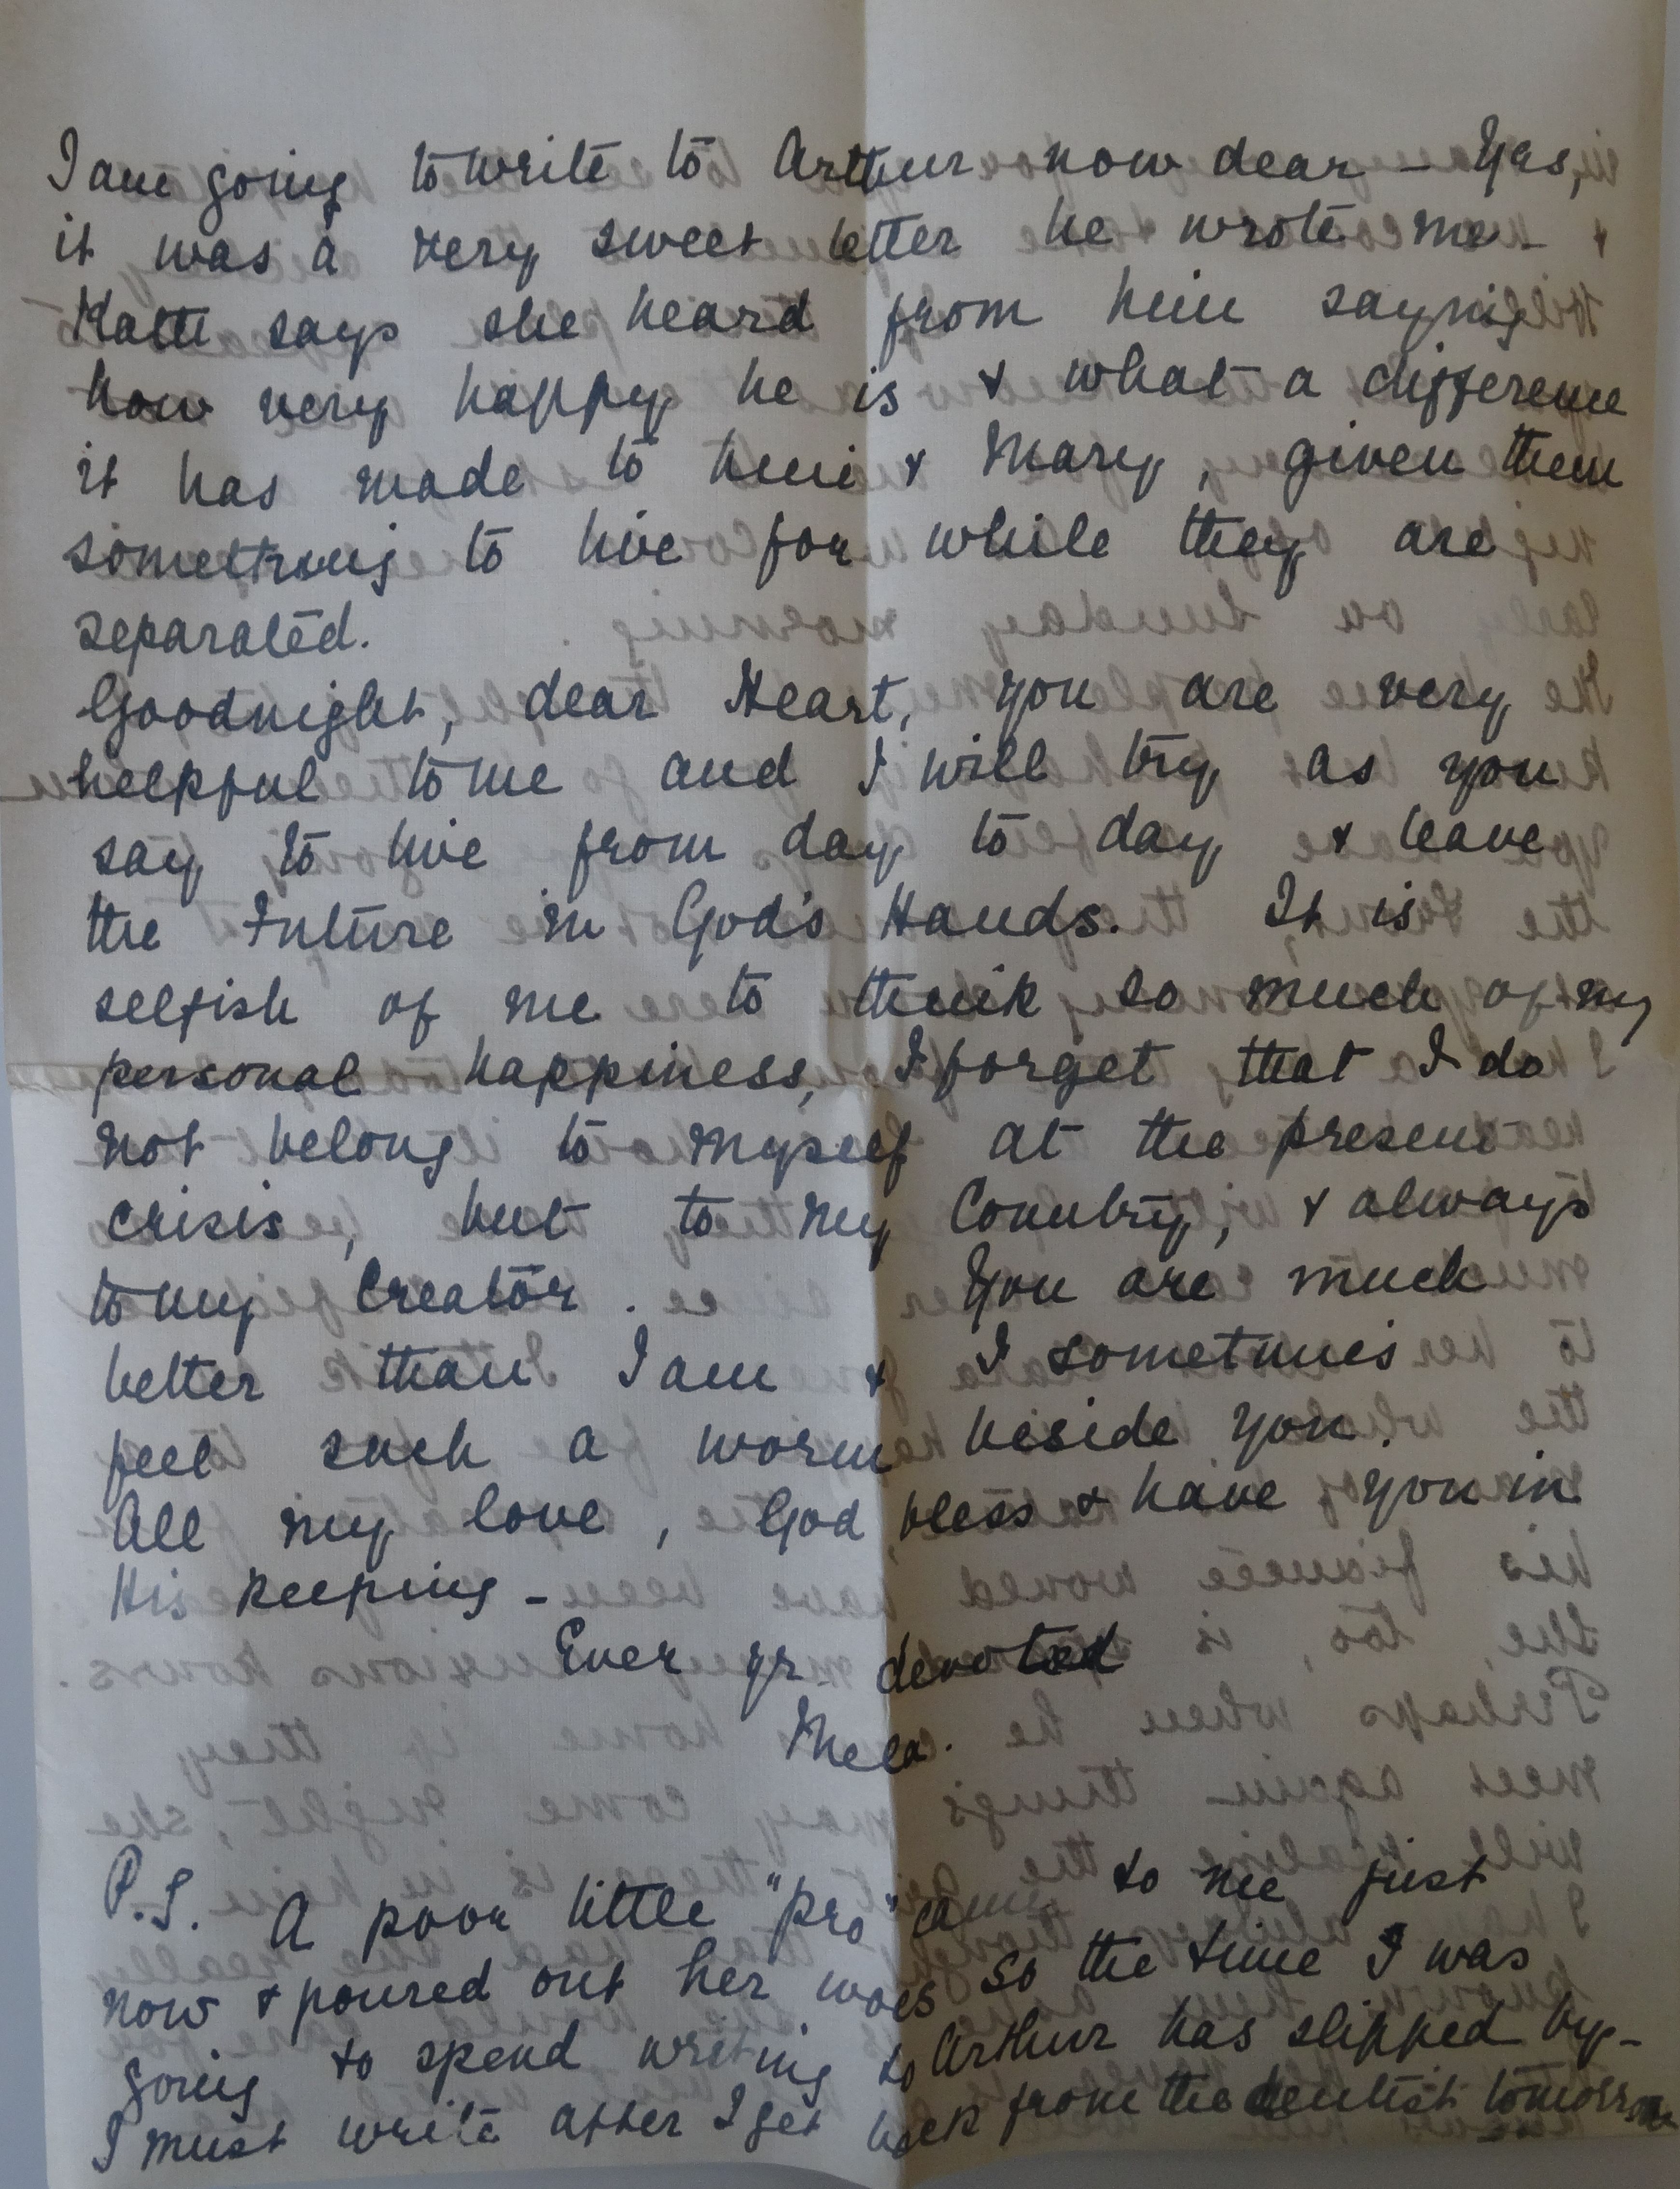 I am going to write to Arthur now dear – Yes,
it was a very sweet letter he wrote me – &
Katie says she heard from him saying
how very happy he is & what a difference
it has made to him & Mary, given them
something to live for while they are
separated.
Goodnight, dear Heart, you are very
helpful to me and I will try as you
say to live from day to day & leave
the Future in God's Hands. It is
selfish of me to think so much of my
personal happiness, I forget that I do
not belong to myself at the present
crisis, but to my Country, & always
to my Creator. You are much
better than I am & I sometimes
feel such a worm beside you.
All my love, God bless & have you in
His keeping –
Ever yr devoted
P.S. A poor little "pro" came to me just
now & poured out her woes so the time I was
going to spend writing to Arthur has slipped by –
I must write after I get back from the dentist tomorrow